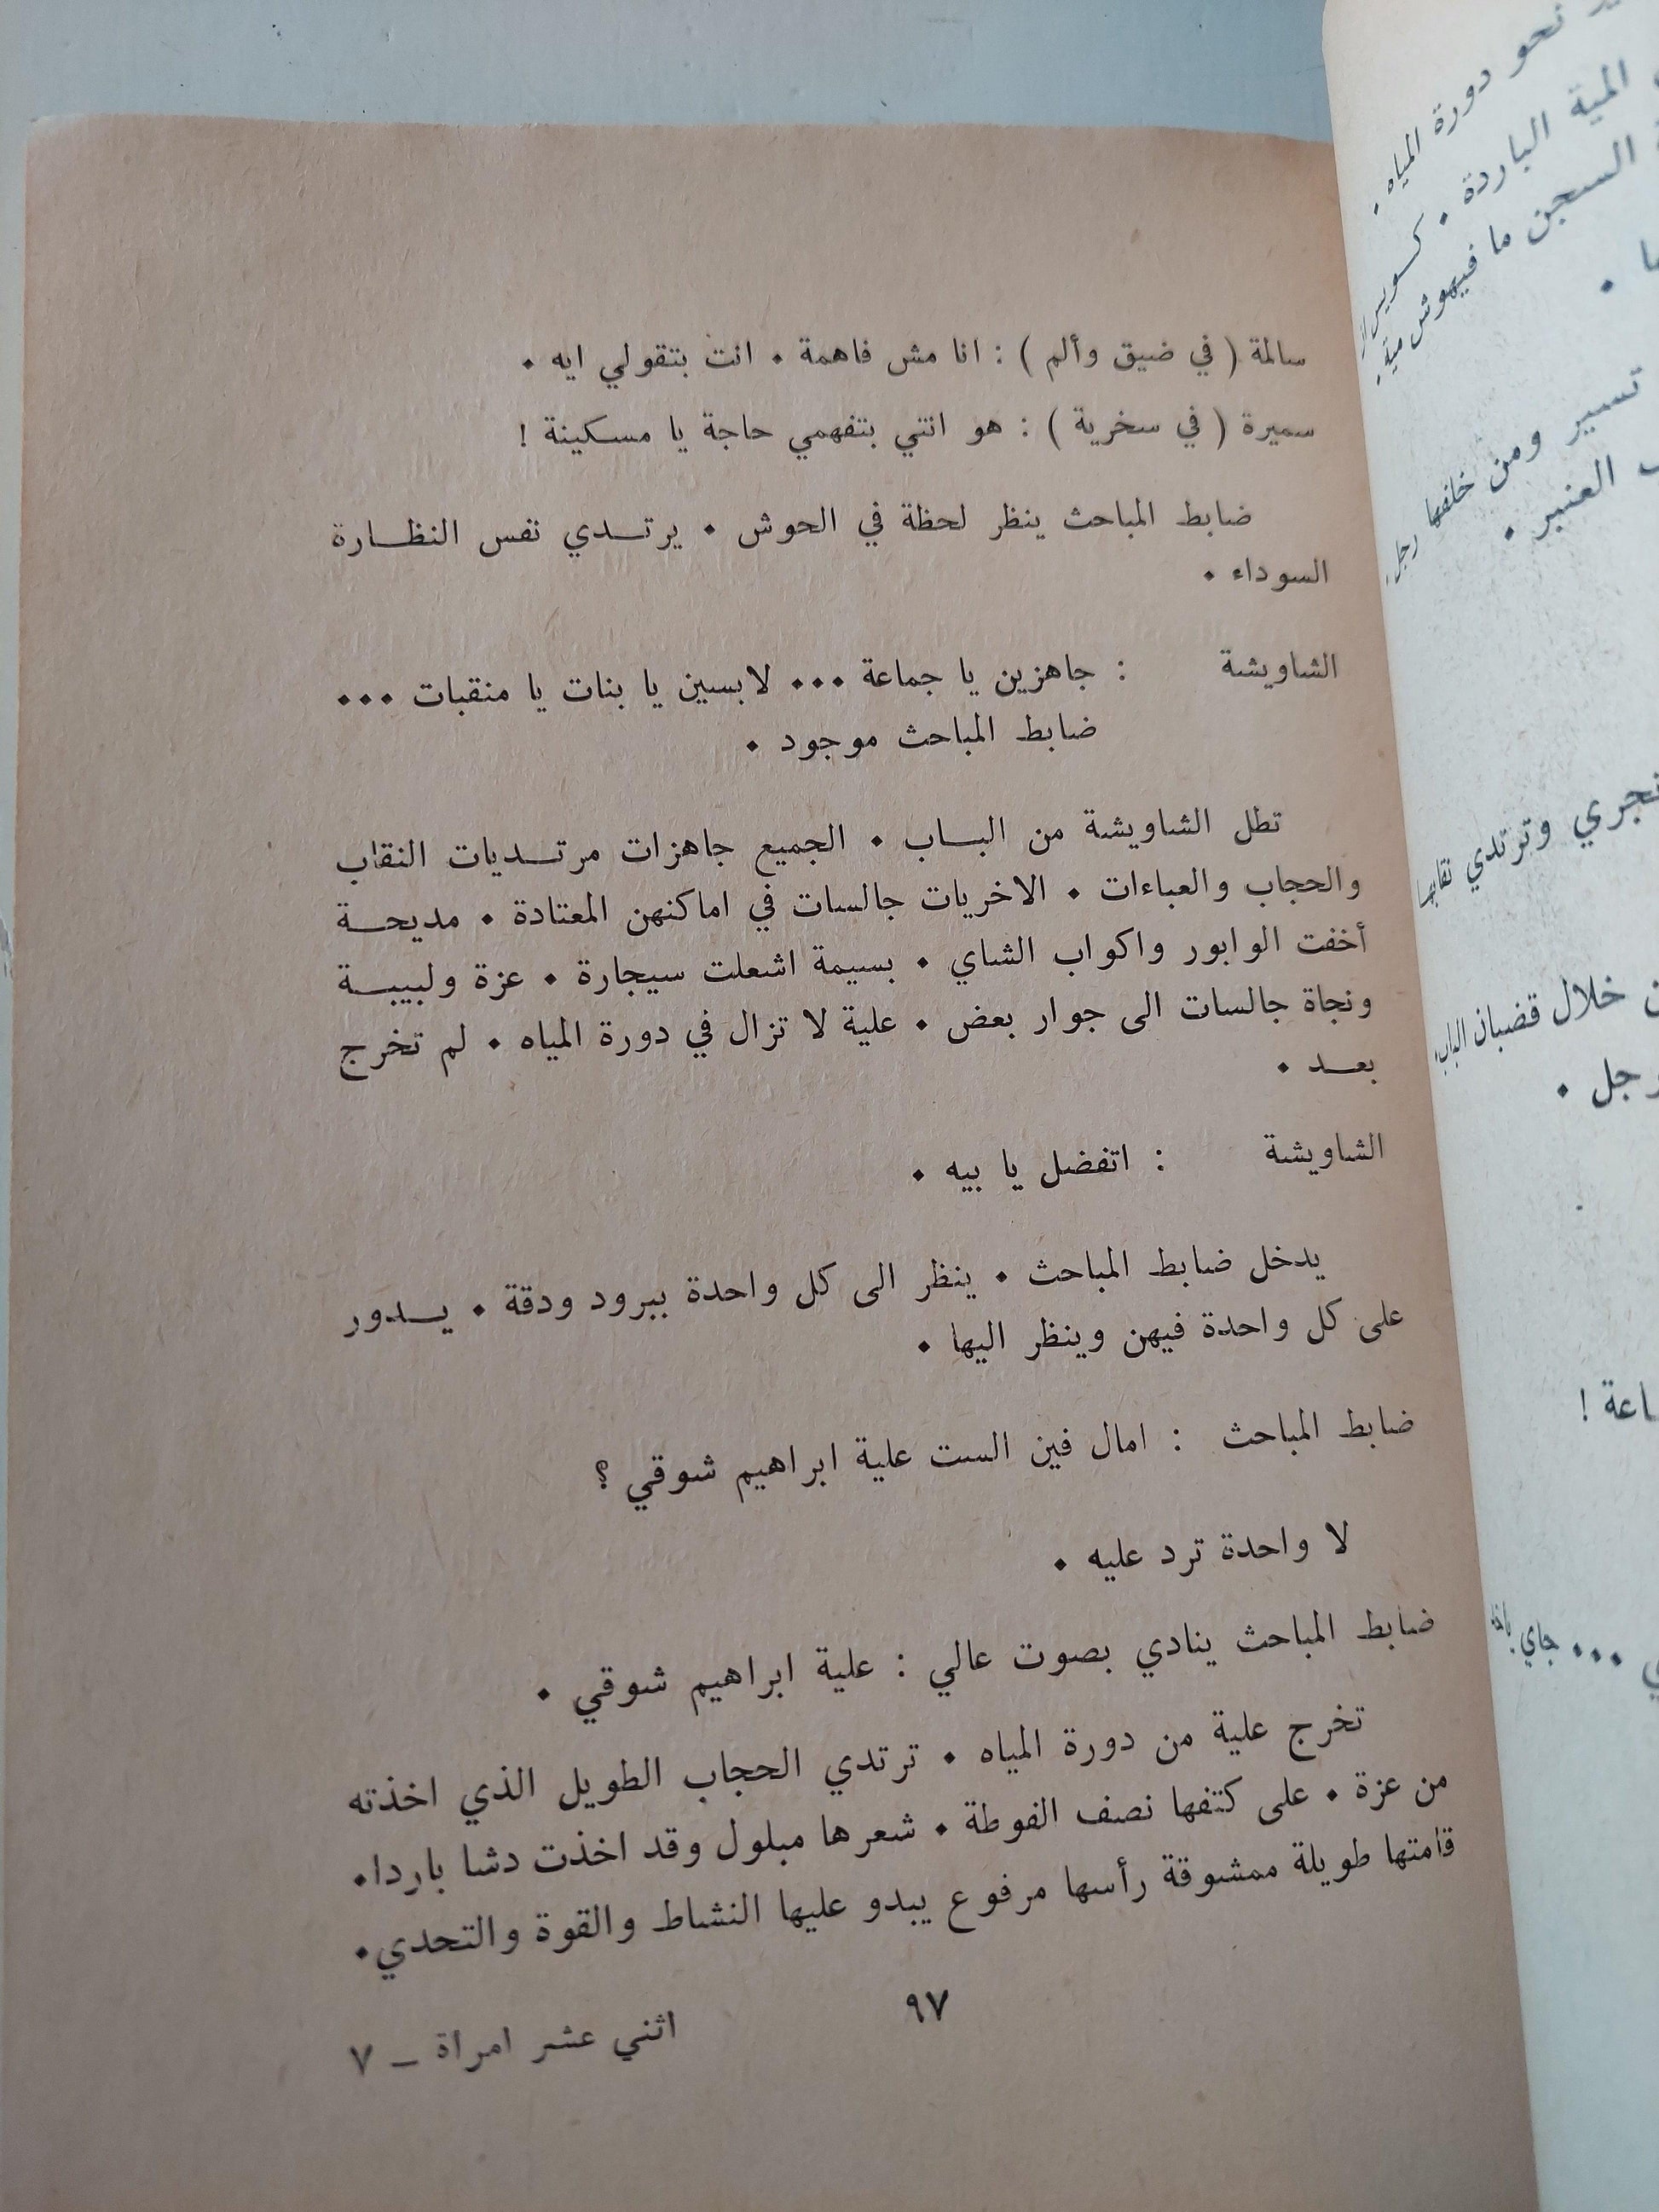 سالمة ( في ضيق وألم ) : انا مش فاهمة . انت بتقولي ايه .
سميرة ( في سخرية ) : هو انتي بتفهمي حاجة يا مسكينة !
ضابط المباحث ينظر لحظة في الحوش . يرتدي نفس النظارة
السوداء .
الشاويشة : جاهزين يا جماعة ... لابسين يا بنات يا منقبات ...
ضابط المباحث موجود .
تطل الشاويشة من الباب . الجميع جاهزات مرتديات النقاب
والحجاب والعباءات . الاخريات جالسات في اماكنهن المعتادة . مديحة
أخفت الوابور واكواب الشاي . بسيمة اشعلت سيجارة . عزة ولبيبة
ونجاة جالسات الى جوار بعض . علية لا تزال في دورة المياه . لم تخرج
بعد .
الشاويشة : اتفضل يا بيه .
يدخل ضابط المباحث . ينظر الى كل واحدة ببرود ودقة . يدور
على كل واحدة فيهن وينظر اليها .
ضابط المباحث : امال فين الست علية ابراهيم شوقي ؟
لا واحدة ترد عليه .
ضابط المباحث ينادي بصوت عالي : علية ابراهيم شوقي .
تخرج علية من دورة المياه . ترتدي الحجاب الطويل الذي اخذته
من عزة . على كتفها نصف الفوطة . شعرها مبلول وقد اخذت دشا باردا.
قامتها طويلة ممشوقة رأسها مرفوع يبدو عليها النشاط والقوة والتحدي.
٩٧
اثني عشر امراة – ٧
نحو دورة المياه .
المية الباردة .
السجن ما فيهوش مية .
تسير ومن خلفها رجل.
العنبر .
وترتدي نقابها
خلال قضبان الباب.
رجل .
... جاي